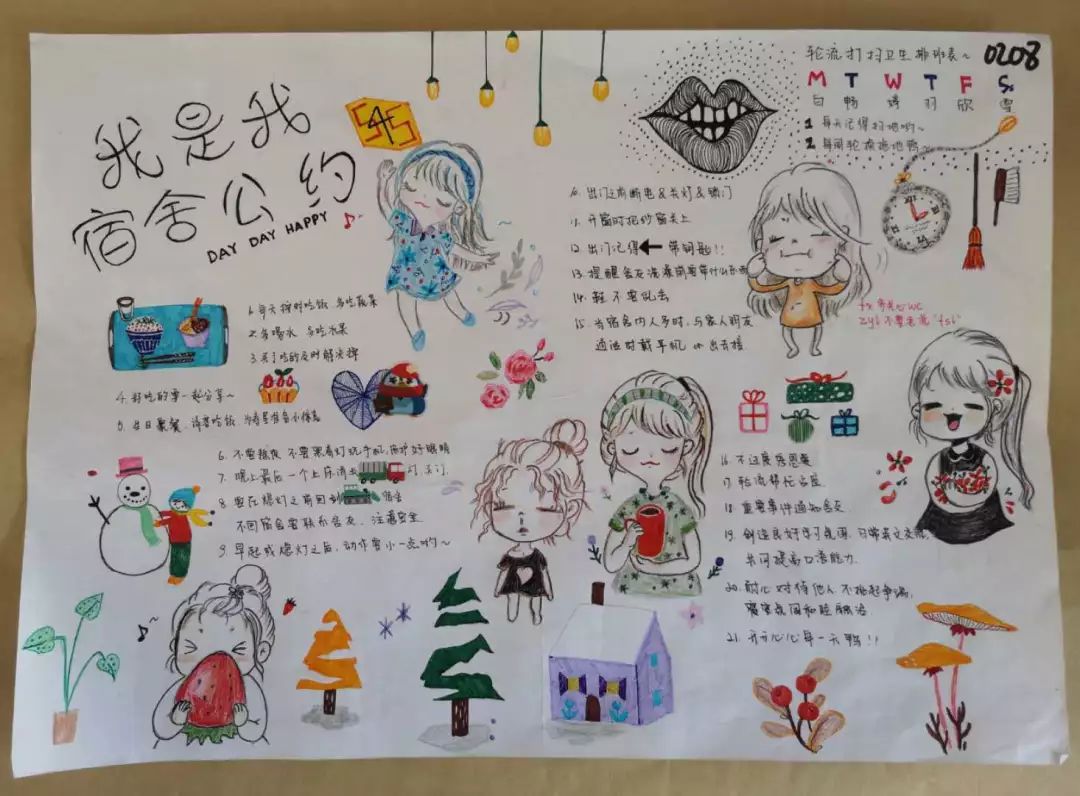 我是我
宿舍公约
DAY DAY HAPPY
轮流打扫卫生排班表~
0208
M T W T F S
白 畅 婷 羽 欣 雪
1 每天记得扫地哟~
2 每周轮流拖地鸭~
1. 每天按时吃饭 多吃蔬菜
2. 多喝水 多吃水果
3. 买了吃的及时解决掉
4. 好吃的要一起分享~
5. 生日聚餐
6. 不要熬夜 不要黑着灯玩手机,保护好眼睛
7. 晚上最后一个上床消去 灯,关门.
8. 要在熄灯之前回到 宿舍
不回宿舍要联系舍友,注意安全
9. 早起或熄灯之后,动作要小一点哟~
10. 出门之前断电&关灯&锁门
11. 开窗时把纱窗关上
12. 出门记得 ← 带钥匙!!
13. 提醒舍友洗澡前要带什么东西
14. 鞋不要乱丢
15. 当宿舍内人多时,与家人朋友
通话时戴耳机 or 出去接
16. 不过度秀恩爱
17. 轮流帮忙占座
18. 重要事件通知舍友
19. 创造良好学习氛围,日常英文交流,
共同提高口语能力.
20. 耐心对待他人,不挑起争端,
21. 开开心心每一天鸭!!